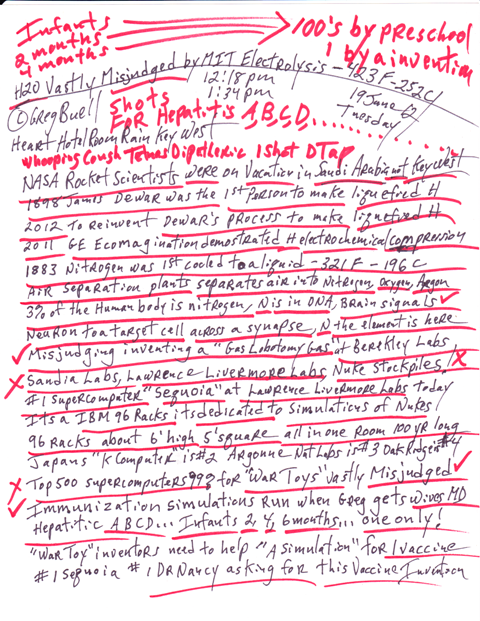 Infants
2 months
4 months
100's by preschool
1 by a invention
H2O Vastly Misjudged by MIT Electrolysis - 423F - 252C
12:18 pm
1:34 pm
19 June 12
Tuesday
© Greg Buell
Shots
FOR Hepatitis A,B,C,D...........
Heart Hotel Room Rain Key West
Whooping Cough Tetnus Diptheria 1 shot DTap
NASA Rocket Scientists were on Vacation in Saudi Arabia not Key West
1898 James Dewar was the 1st Person to make liquefied H
2012 To Reinvent Dewar's process to make liquefied H
2011 GE Ecomagination demostrated H electrochemical compression
1883 Nitrogen was 1st cooled to a liquid - 321 F - 196 C
AiR separation plants separates air into Nitrogen, Oxygen, Argon
3% of the Human body is nitrogen, N is in DNA, Brain signals
Neuron to a target cell across a synapse, N the element is here
Misjudging inventing a "Gas Lobotomy Gas" at Berekley Labs
Sandia Labs, Lawrence Livermore Labs Nuke Stockpiles,
#1 Supercomputer "Sequoia" at Lawrence Livermore Labs Today
Its a IBM 96 Racks its dedicated to Simulations of Nukes
96 Racks about 6' high 5' square all in one Room 100 yr long
Japans "K Computer" is #2 Argonne Nat Labs is #3 Oak Ridges #4
Top 500 supercomputers 99% for "War Toys" vastly Misjudged
Immunization simulations Run when Greg gets Wives MD
Hepatitic A B C D... Infants 2, 4, 6 months... one only!
"War Toy" inventors need to help "A Simulation" for 1 vaccine
#1 Sequoia #1 DR Nancy asking for this Vaccine Invention